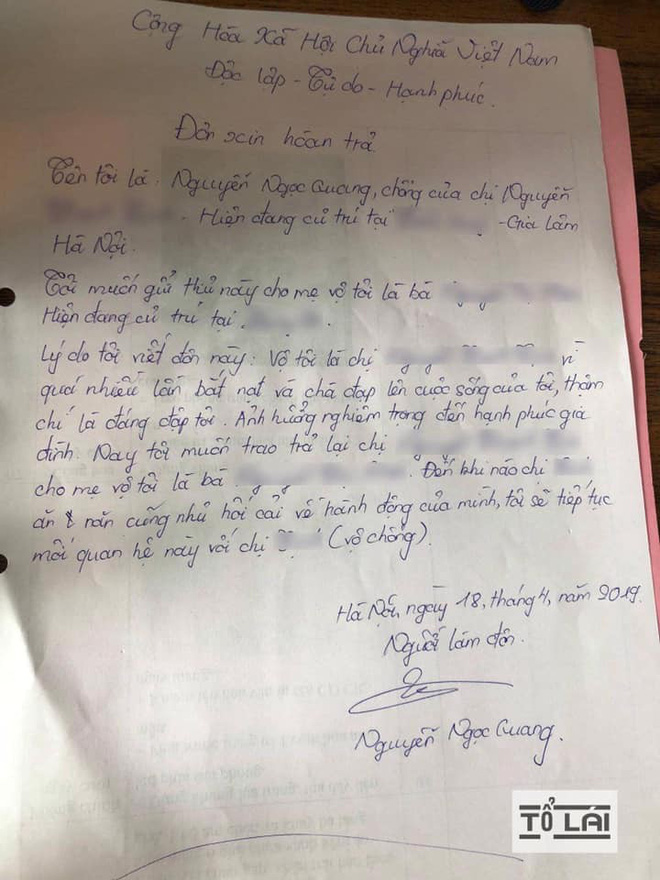 Cộng Hóa Xã Hội Chủ Nghĩa Việt Nam
Độc lập - Tự do - Hạnh phúc.
Đơn xin hoàn trả
Tên tôi là: Nguyễn Ngọc Quang, chồng của chị Nguyễn
- Hiện đang cư trú tại - Gia Lâm
Hà Nội.
Tôi muốn gửi thư này cho mẹ vợ tôi là bà
Hiện đang cư trú tại
Lý do tôi viết đơn này: Vợ tôi là chị vì
quá nhiều lần bắt nạt và chà đạp lên cuộc sống của tôi, thậm
chí là đánh đập tôi. Ảnh hưởng nghiêm trọng đến hạnh phúc gia
đình. Nay tôi muốn trao trả lại chị
cho mẹ vợ tôi là bà . Đến khi nào chị
ăn năn cũng như hối cải về hành động của mình, tôi sẽ tiếp tục
mối quan hệ này với chị (vợ chồng).
Hà Nội, ngày 18, tháng 4, năm 2019.
Người làm đơn.
Nguyễn Ngọc Quang.
TỔ LÁI